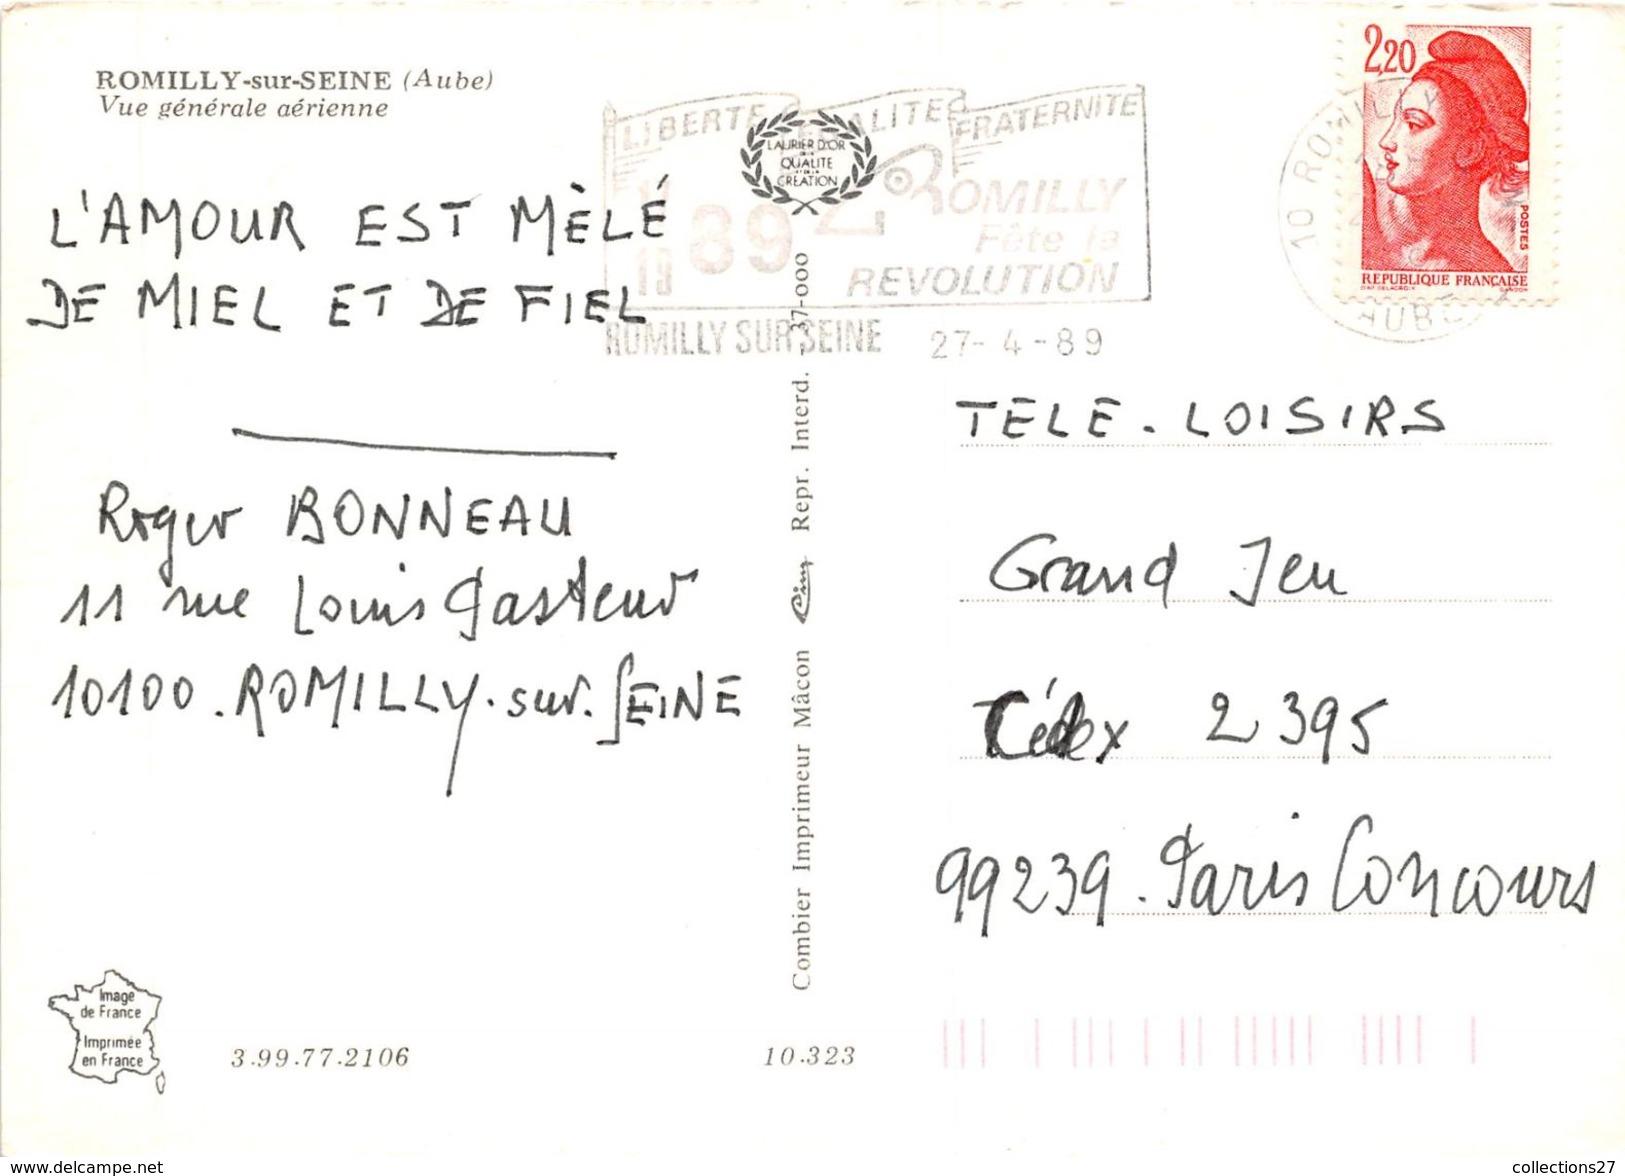 ROMILLY-sur-SEINE (Aube)
Vue générale aérienne
L'AMOUR EST MÈLÉ
DE MIEL ET DE FIEL
Roger BONNEAU
11 rue Louis Pasteur
10100. ROMILLY. sur. SEINE
Image
de France
Imprimée
en France
3.99.77.2106
10.323
Combier Imprimeur Mâcon Cim Repr. Interd. - 37-000
LIBERTE EGALITE FRATERNITE
LAURIER D'OR
DE LA
QUALITE
ET DE LA
CREATION
89
ROMILLY
Fête la
REVOLUTION
ROMILLY SUR SEINE 27-4-89
10 ROMILLY
AUBE
2,20
POSTES
REPUBLIQUE FRANÇAISE
D'AP. DELACROIX GANDON
TELE-LOISIRS
Grand Jeu
Cédex 2 395
99239. Paris Concours
www.delcampe.net
collections27